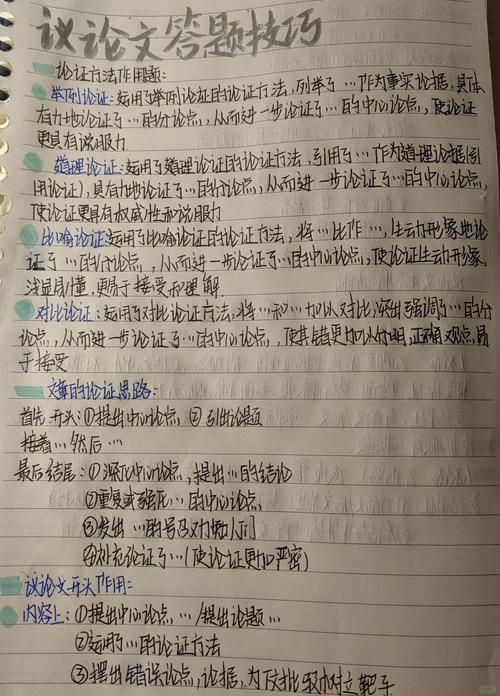 议论文答题技巧
论证方法作用题:
举例论证:运用了举例论证的论证方法,列举了…作为事实论据,具体
有力地论证了…的分论点,从而进一步论证了…的中心论点,使论证
更具有说服力
道理论证:运用了道理论证的论证方法,引用了…作为道理论据(引
用论证),具有力地论证了…的分论点,从而进一步论证了…的中心论点,
使论证更具有权威性和说服力
比喻论证:运用了比喻论证的论证方法,将…比作…,生动形象地论
证了…的分论点,从而进一步论证了…的中心论点,使论证生动形象,
浅显易懂,更易于接受和理解
对比论证:运用了对比论证方法,将…和…加以对比,突出强调了…的分
论点,从而进一步论证了…的中心论点,使其错更加以分明,正确观点,易
于接受
文章的论证思路:
首先开头:①提出中心论点 ②引出论题
接着…然后…
最后结尾:①深化中心论点,提出…的结论
②重复或强化…的中心论点
③发出…的号召对勉人们
④补充论证了…(使论证更加严密)
议论文开头作用:
内容上:①提出中心论点…/提出论题…
②运用了…的论证方法
③摆出错误论点,论据,为下文批驳树立靶子